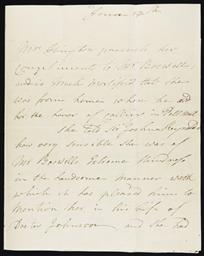 Mrs Abington presents her
Compliments to Mr Boswell
and is much mortified that she
was from home when he did
her the honor of calling in Pall Mall
She told Sir Joshua Reynolds
how very sensible she was of
Mr Boswells Extreme Kindness
in the handsome manner with
which it has pleased him to
mention her in his Life of
Doctor Johnson and she had